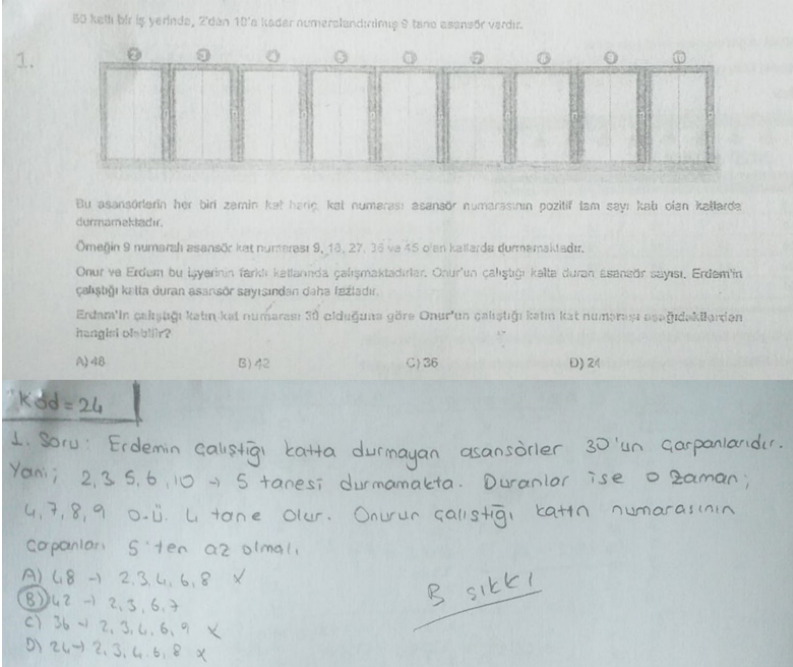 50 katlı bir iş yerinde, 2'den 10'a kadar numaralandırılmış 9 tane asansör vardır.
1.
2 3 4 5 6 7 8 9 10
Bu asansörlerin her biri zemin kat hariç, kat numarası asansör numarasının pozitif tam sayı katı olan katlarda
durmamaktadır.
Örneğin 9 numaralı asansör kat numarası 9, 18, 27, 36 ve 45 olan katlarda durmamaktadır.
Onur ve Erdem bu işyerinin farklı katlarında çalışmaktadırlar. Onur'un çalıştığı katta duran asansör sayısı, Erdem'in
çalıştığı katta duran asansör sayısından daha fazladır.
Erdem'in çalıştığı katın kat numarası 30 olduğuna göre Onur'un çalıştığı katın kat numarası aşağıdakilerden
hangisi olabilir?
A) 48 B) 42 C) 36 D) 24
Kod = 24
1. Soru: Erdemin çalıştığı katta durmayan asansörler 30'un çarpanlarıdır.
Yani; 2, 3 5, 6, 10 → 5 tanesi durmamakta. Duranlar ise o zaman;
4, 7, 8, 9 o.ü. 4 tane olur. Onurun çalıştığı katın numarasının
çapanları 5'ten az olmalı
A) 48 → 2, 3, 4, 6, 8 X
B) 42 → 2, 3, 6, 7
C) 36 → 2, 3, 4, 6, 9 X
D) 24 → 2, 3, 4, 6, 8 X
B şıkkı